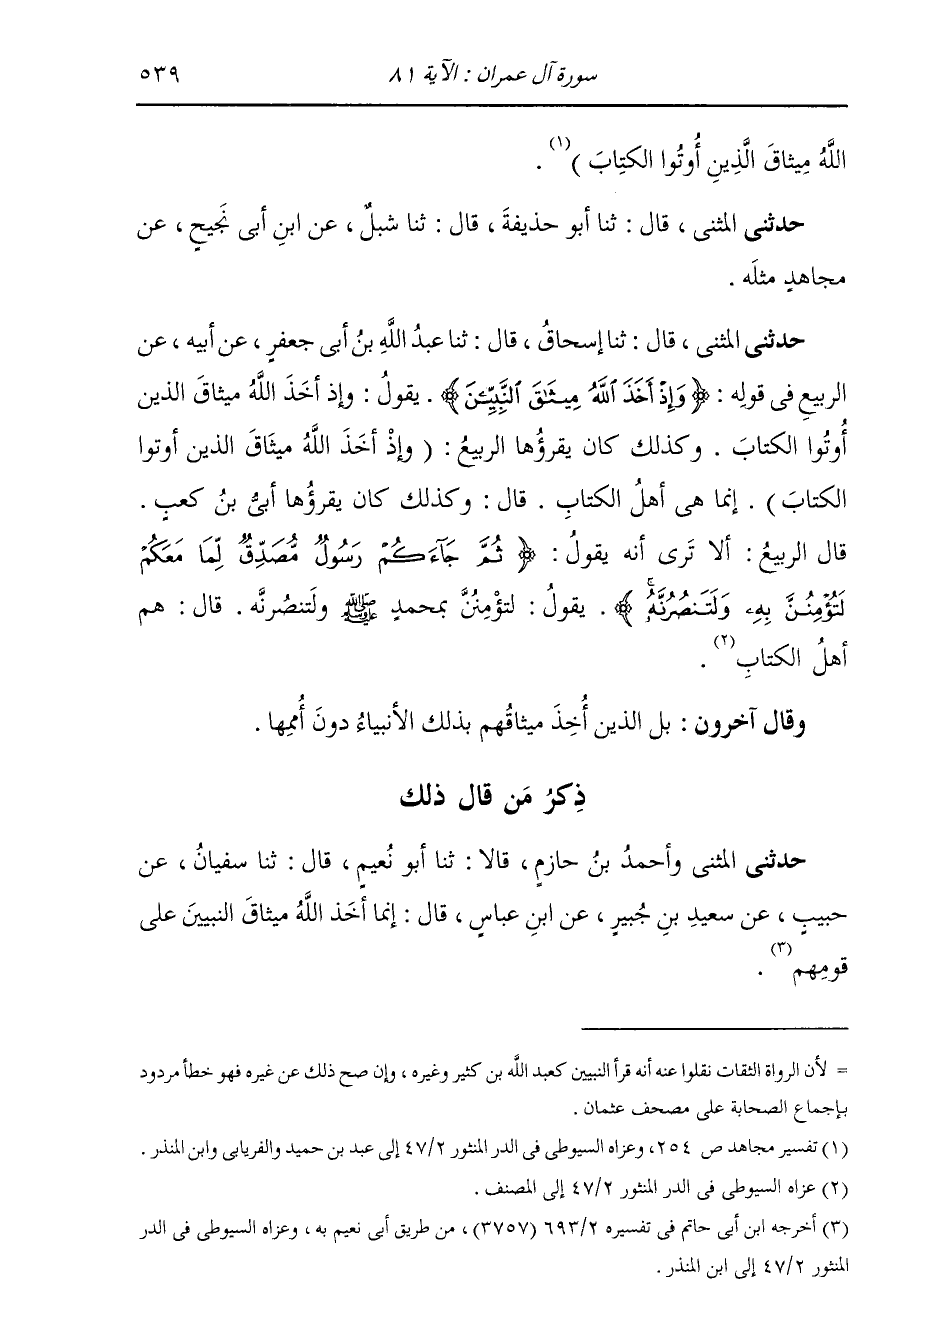 سورة آل عمران : الآية ٨١ ٥٣٩
اللَّهُ مِيثاقَ الَّذِينِ أُوتُوا الكتِابَ )(١) .
حدثنى المثنى ، قال : ثنا أبو حذيفةَ ، قال : ثنا شبلٌ ، عن ابنِ أبى نَجيحٍ ، عن
مجاهدٍ مثلَه .
حدثنى المثنى ، قال : ثنا إسحاقُ ، قال : ثنا عبدُ اللَّهِ بنُ أبى جعفرٍ ، عن أبيه ، عن
الربيعِ فى قولِه : ﴿ وَإِذْ أَخَذَ ٱللَّهُ مِيثَٰقَ ٱلنَّبِيِّـۧنَ ﴾ . يقولُ : وإذ أخَذَ اللَّهُ ميثاقَ الذين
أُوتُوا الكتابَ . وكذلك كان يقرؤُها الربيعُ : ( وإذْ أخَذَ اللَّهُ ميثَاقَ الذين أوتوا
الكتابَ ) . إنما هى أهلُ الكتابِ . قال : وكذلك كان يقرؤُها أبىُّ بنُ كعبٍ .
قال الربيعُ : ألا تَرى أنه يقولُ : ﴿ ثُمَّ جَآءَكُمْ رَسُولٌ مُّصَدِّقٌ لِّمَا مَعَكُمْ
لَتُؤْمِنُنَّ بِهِۦ وَلَتَنصُرُنَّهُۥۚ ﴾ . يقولُ : لتؤْمِنُنَّ بمحمدٍ ﷺ ولَتنصُرنَّه . قال : هم
أهلُ الكتابِ(٢) .
وقال آخرون : بل الذين أُخِذَ ميثاقُهم بذلك الأنبياءُ دونَ أُممِها .
ذِكرُ مَن قال ذلك
حدثنى المثنى وأحمدُ بنُ حازمٍ ، قالا : ثنا أبو نُعيمٍ ، قال : ثنا سفيانُ ، عن
حبيبٍ ، عن سعيدِ بنِ جُبيرٍ ، عن ابنِ عباسٍ ، قال : إنما أخَذ اللَّهُ ميثاقَ النبيينَ على
قومِهم(٣) .
= لأن الرواة الثقات نقلوا عنه أنه قرأ النبيين كعبد الله بن كثير وغيره ، وإن صح ذلك عن غيره فهو خطأ مردود
بإجماع الصحابة على مصحف عثمان .
(١) تفسير مجاهد ص ٢٥٤، وعزاه السيوطى فى الدر المنثور ٤٧/٢ إلى عبد بن حميد والفريابى وابن المنذر .
(٢) عزاه السيوطى فى الدر المنثور ٤٧/٢ إلى المصنف .
(٣) أخرجه ابن أبى حاتم فى تفسيره ٦٩٣/٢ (٣٧٥٧) ، من طريق أبى نعيم به ، وعزاه السيوطى فى الدر
المنثور ٤٧/٢ إلى ابن المنذر .